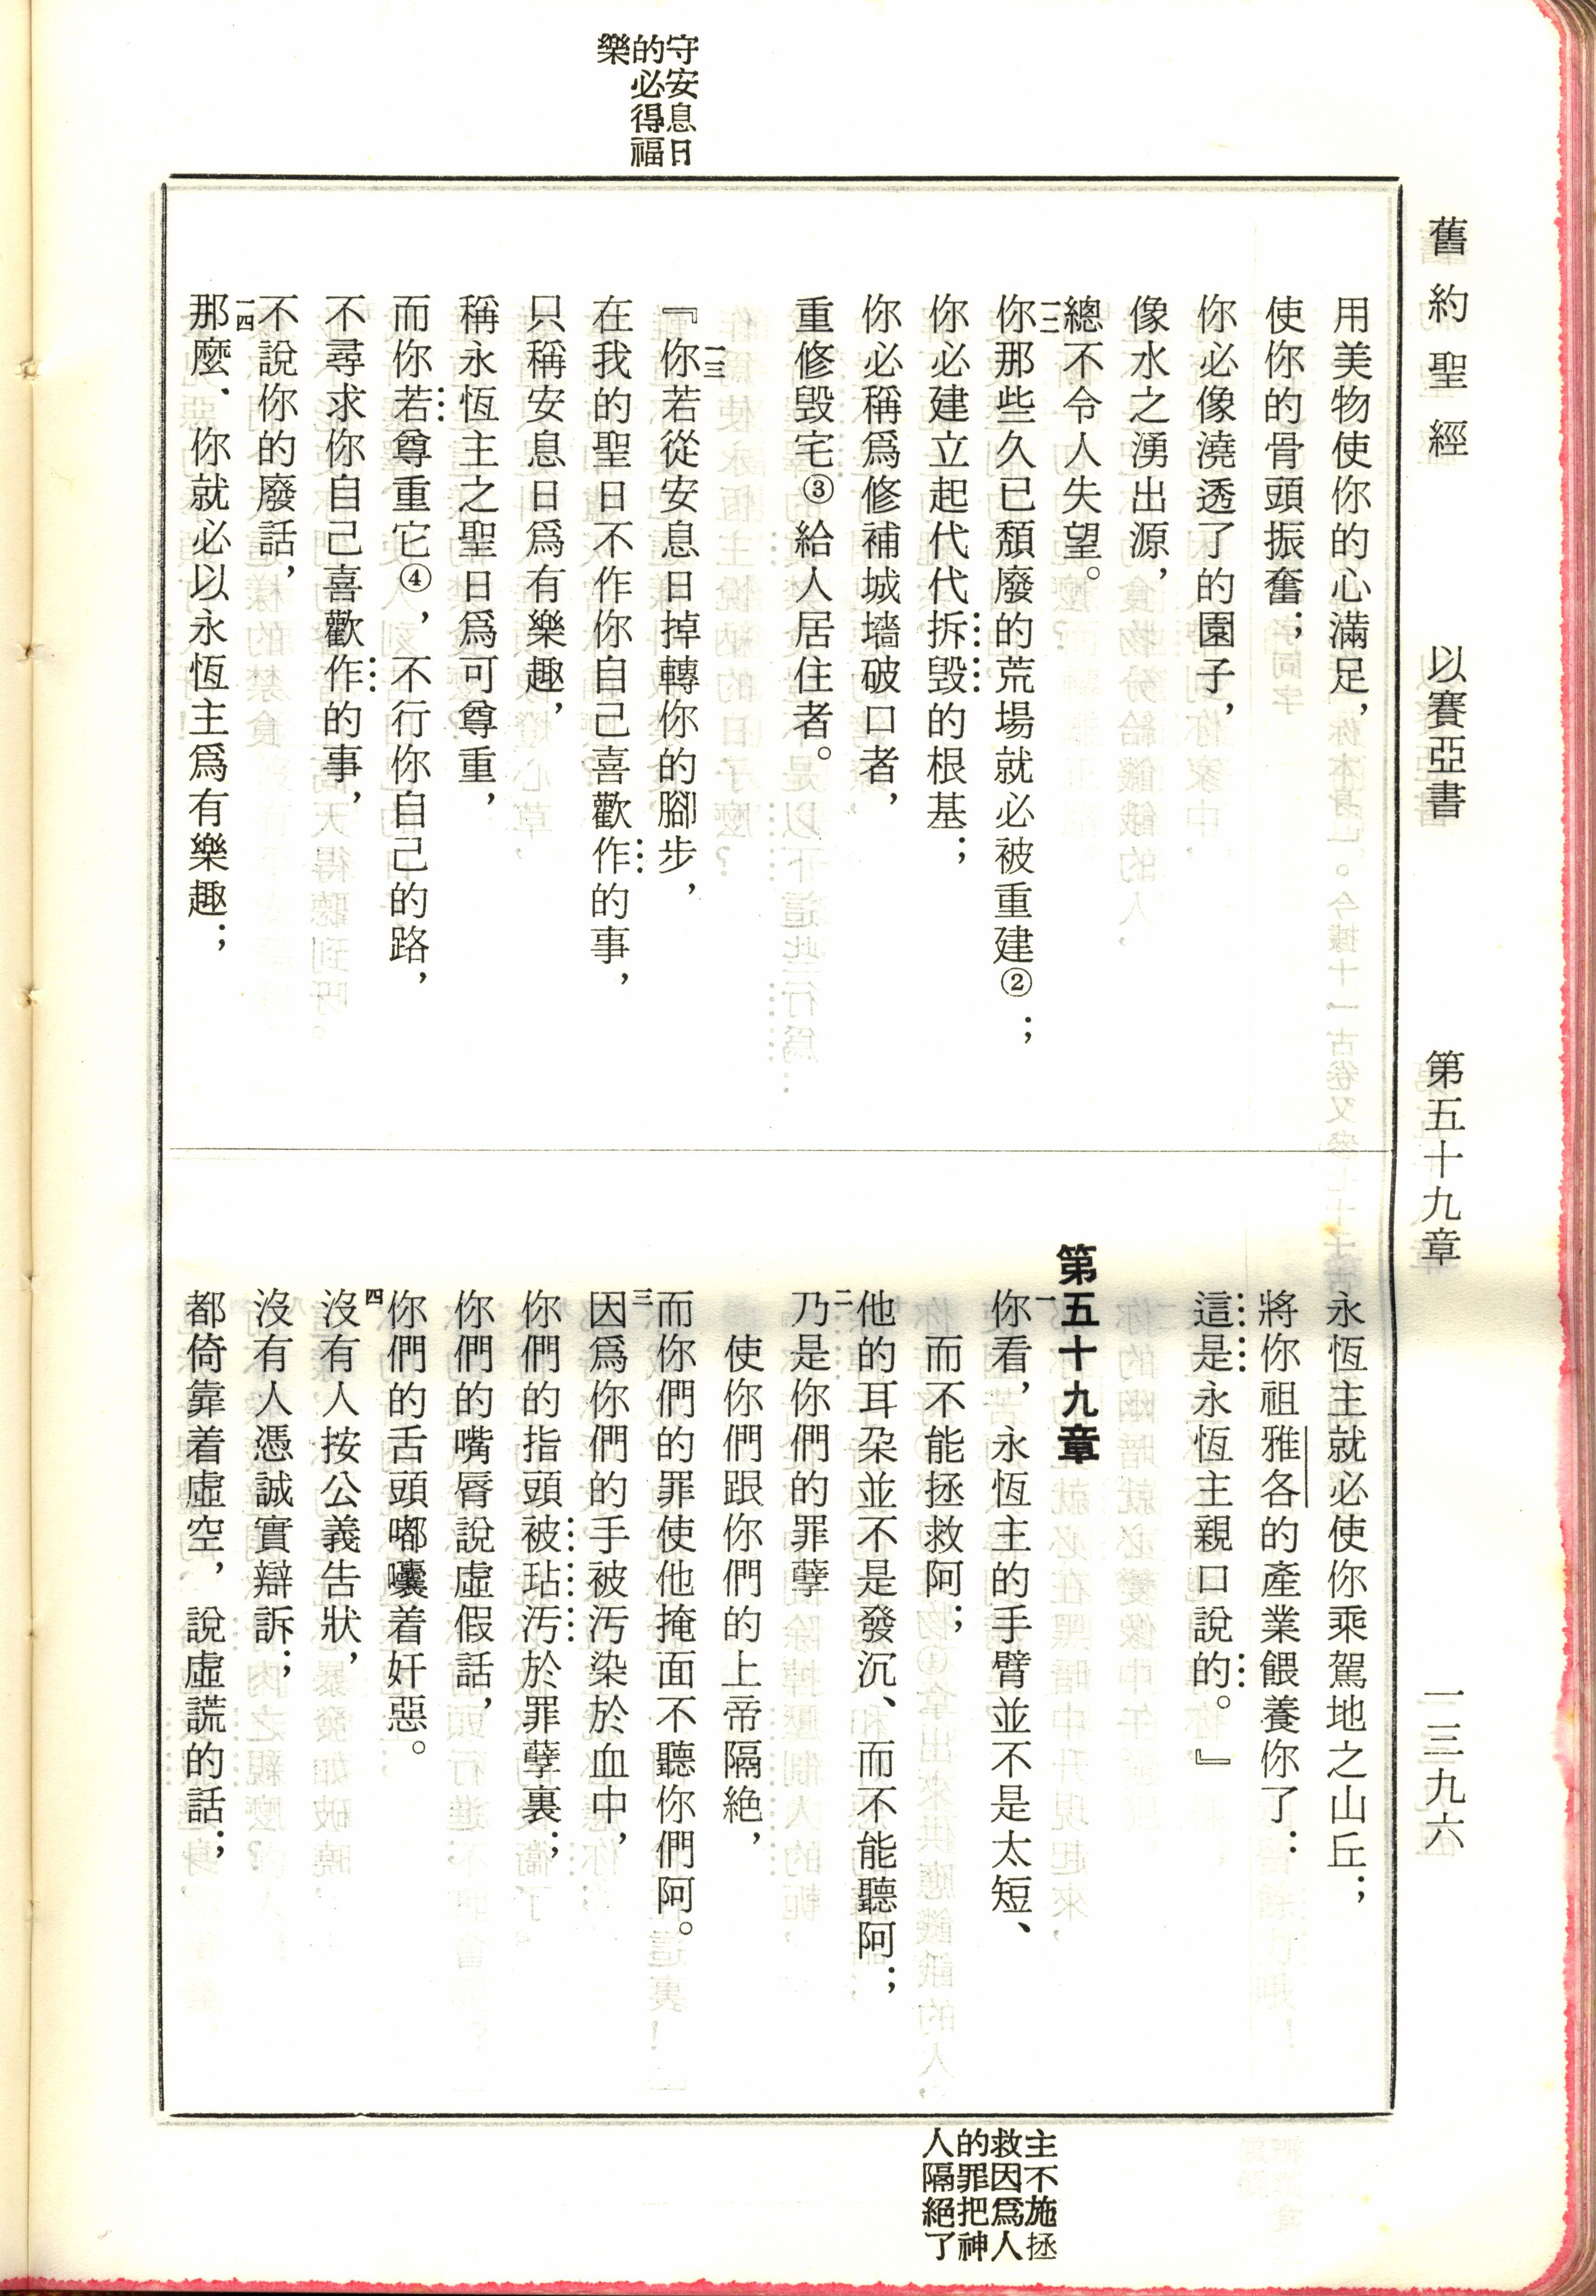 舊約聖經　以賽亞書　第五十九章　一三九六
守安息日
的必得福
樂
用美物使你的心滿足，
使你的骨頭振奮；
你必像澆透了的園子，
像水之湧出源，
總不令人失望。
一二你那些久已頹廢的荒場就必被重建②；
你必建立起代代拆毀的根基；
你必稱爲修補城墻破口者，
重修毀宅③給人居住者。
一三『你若從安息日掉轉你的腳步，
在我的聖日不作你自己喜歡作的事，
只稱安息日爲有樂趣，
稱永恆主之聖日爲可尊重，
而你若尊重它④，不行你自己的路，
不尋求你自己喜歡作的事，
不說你的廢話，
一四那麼、你就必以永恆主爲有樂趣；
永恆主就必使你乘駕地之山丘；
將你祖雅各的產業餵養你了：
這是永恆主親口說的。』
第五十九章
一你看，永恆主的手臂並不是太短、
而不能拯救阿；
他的耳朶並不是發沉、而不能聽阿；
二乃是你們的罪孽
使你們跟你們的上帝隔絕，
而你們的罪使他掩面不聽你們阿。
三因爲你們的手被汚染於血中，
你們的指頭被玷汚於罪孽裏；
你們的嘴脣說虛假話，
你們的舌頭嘟囔着奸惡。
四沒有人按公義告狀，
沒有人憑誠實辯訴；
都倚靠着虛空，說虛謊的話；
主不施拯
救因爲人
的罪把神
人隔絕了